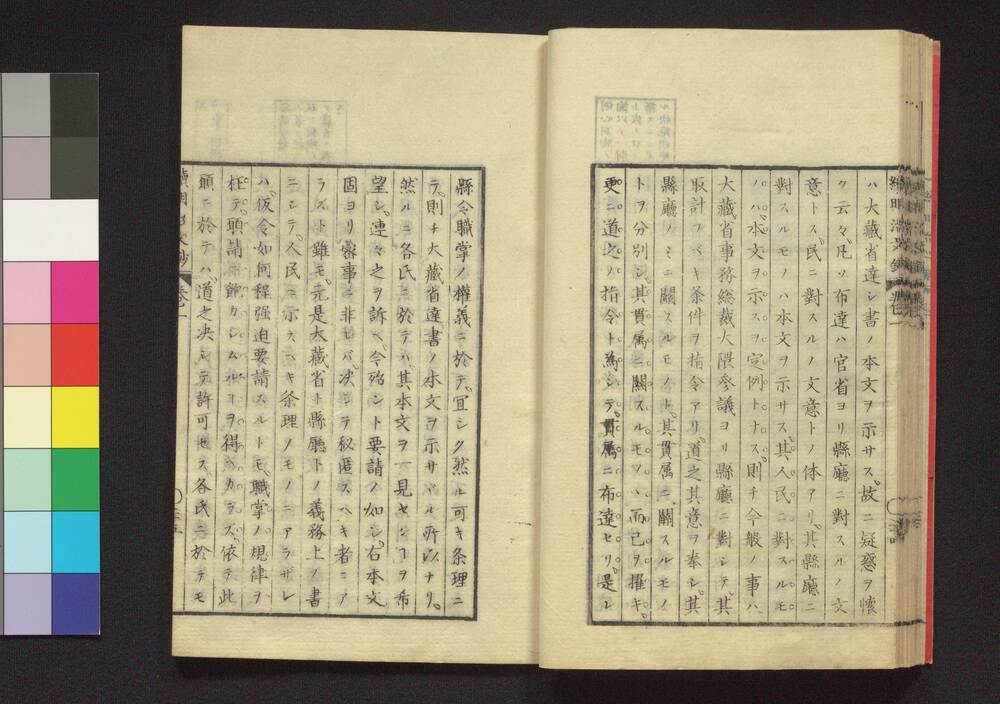 ハ大藏省達シ書ノ本文ヲ示サス。故ニ疑惑ヲ懷
ク云々、凡ソ布達ハ官省ヨリ縣廳ニ對スルノ文
意トス、民ニ對スルノ文意トノ体アリ。其縣廳ニ
對スルモノハ本文ヲ示サス、其人民ニ對スルモ
ノハ、本文ヲ示スヲ定例トナス。則チ今般ノ事ハ、
大藏省事務総裁大隈参議ヨリ縣廳ニ對シテ、其
取計フヘキ条件ヲ指令アリ。道之其意ヲ奉シ、其
縣廳ノミニ關スルモノト、其貫属ニ關スルモノ
トヲ分別シ、其貫属ニ關スルモノハ、而已ヲ擢キ、
更ニ道之ハ指令ト為シテ、貫属ニ布達セリ。是レ
縣令職掌ノ權義ニ於テ、宜シク然ル可キ条理ニ
テ、則チ大藏省達書ノ本文ヲ示サヾル所以ナリ。
然ルニ各氏ニ於テハ、其本文ヲ一見センヿヲ希
望シ、連々之ヲ訴ヘ、今殆ント要請ノ如シ。右本文
固ヨリ密事ニ非レバ、决シテ秘匿スヘキ者ニア
ラスト雖モ、元是大藏省ト縣廳トノ義務上ノ書
ニシテ、人民ニ示スヘキ条理ノモノニアラザレ
ハ、仮令如何程强迫要請スルトモ、職掌ノ規律ヲ
枉テ、頭請ニ飽カシムルヿヲ得ヘカラズ、依テ此
頭ニ於テハ、道之决シテ許可セス、各氏ニ於テモ